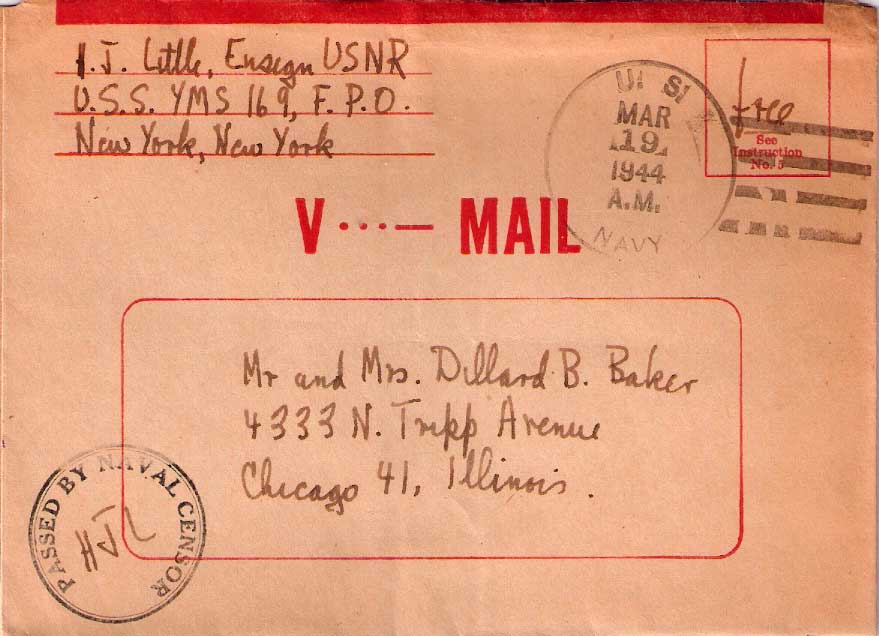 H.J. Little, Ensign USNR
U.S.S. YMS 169, F.P.O.
New York, New York
U. S.
MAR
19
1944
A.M.
NAVY
free
See
Instruction
No. 5
V···— MAIL
Mr and Mrs. Dillard B. Baker
4333 N. Tripp Avenue
Chicago 41, Illinois.
PASSED BY NAVAL CENSOR
HJL